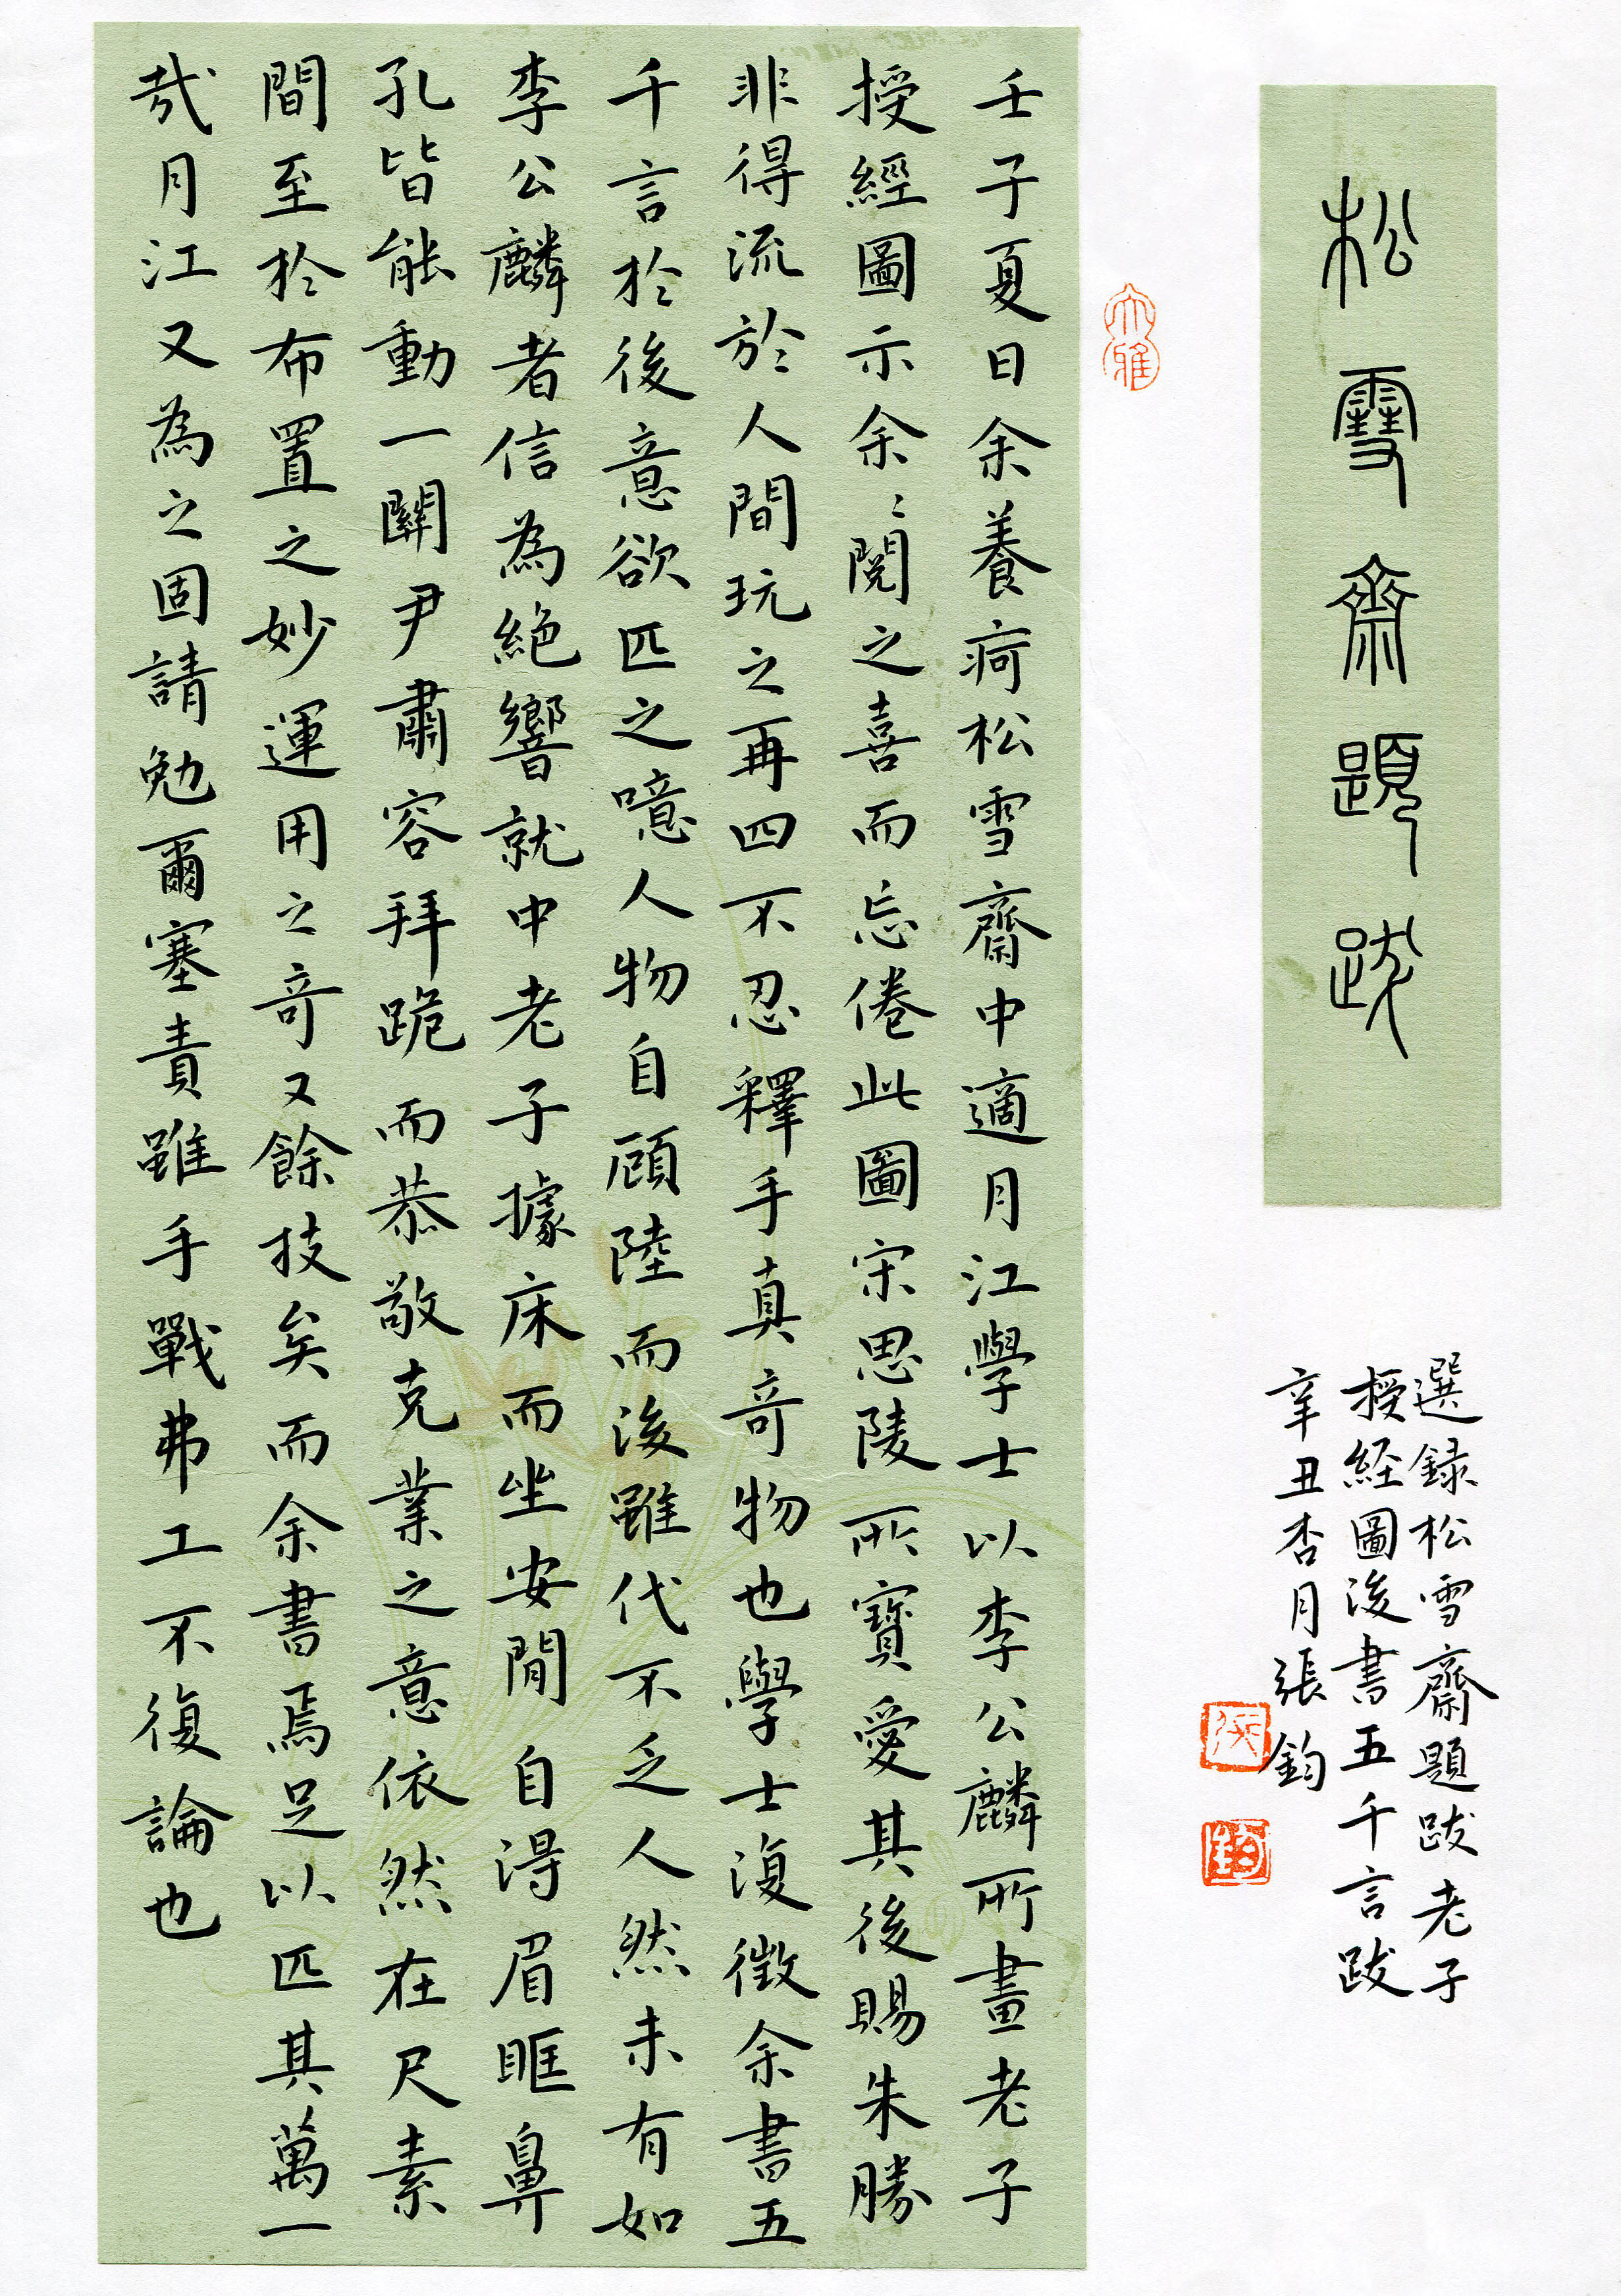 松雪齋題跋
選録松雪齋題跋老子
授経圖後書五千言跋
辛丑杏月張鈞
大雅
張
鈞
壬子夏日余養疴松雪齋中適月江學士以李公麟所畫老子
授經圖示余〻閱之喜而忘倦此圖宋思陵所寶愛其後賜朱勝
非得流於人間玩之再四不忍釋手真奇物也學士復徵余書五
千言於後意欲匹之噫人物自顧陸而後雖代不乏人然未有如
李公麟者信為絕響就中老子據床而坐安閒自得眉眶鼻
孔皆能動一關尹肅容拜跪而恭敬克業之意依然在尺素
間至於布置之妙運用之奇又餘技矣而余書焉足以匹其萬一
哉月江又為之固請勉爾塞責雖手戰弗工不復論也